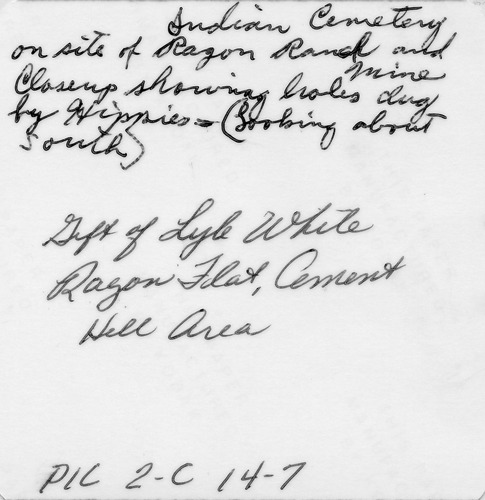 Indian Cemetery
on site of Ragon Ranch and
Mine
Closeup showing holes dug
by Hippies - (Looking about
South)
Gift of Lyle White
Ragon Flat, Cement
Hill Area
PIC 2-C 14-7